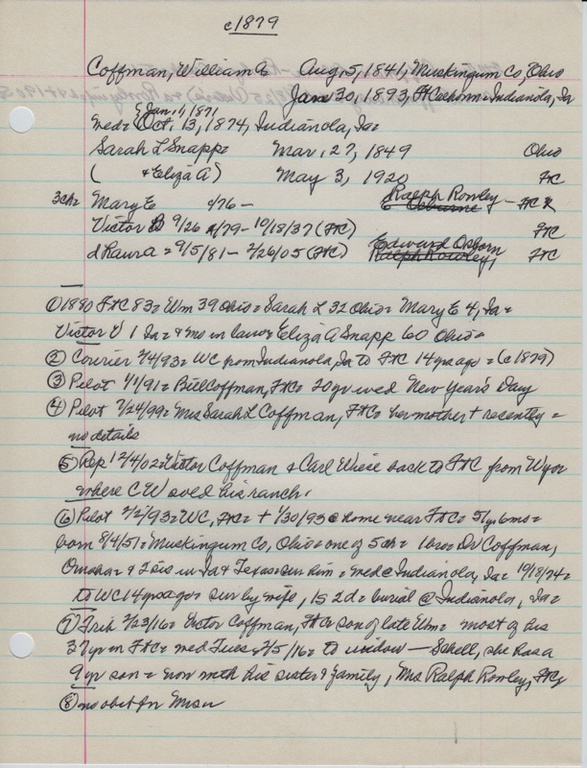 c1879
Coffman, William E Aug, 5, 1841, Muskingum Co, Ohio
Jan 30, 1893, Ft Calhoun = Indianola, Ia
& Jan, 1, 1871
wed = Oct. 13, 1874, Indianola, Ia =
Sarah L Snapp = Mar. 27, 1849 Ohio
( & Eliza A) May 3, 1920 FtC
3ch = Mary E 4/76 - Ralph Rowley - FtC
Victor 9/26 1879 - 10/18/37 (FtC) FtC
d Laura = 9/5/81 - 2/26/05 (FtC) Edward Osborn FtC
Ralph Rowley,
① 1880 FtC 83 = Wm 39 Ohio = Sarah L 32 Ohio = Mary E 4, Ia =
Victor 1 Ia = & mo in law = Eliza A Snapp 60 Ohio =
② Courier 2/4/93 = WC from Indianola, Ia to FtC 14 yr ago = (c1879)
③ Pilot 1/1/91 = Bill Coffman, FtC = 20 yr wed New Year's Day
④ Pilot 2/24/99 = Mrs Sarah L Coffman, FtC = her mother + recently =
no details
⑤ Rep 12/4/02 = Victor Coffman & Carl Wiese back to FtC from Wyo =
where CW sold his ranch.
⑥ Pilot 2/2/93 = WC, FtC = + 1/30/93 @ home near FtC = 51 yr 6mo =
born 8/4/51 = Muskingum Co, Ohio = one of 5 ch = 1 bro = Dr Coffman,
Omaha = & 2 sis in Ia & Texas = sur him = wed @ Indianola, Ia = 10/18/74 =
to WC 14 yr ago = sur by wife, 1s 2d = burial @ Indianola, Ia =
⑦ Trib 2/23/16 = Victor Coffman, FtC = son of late Wm = most of his
37 yr in FtC = wed Tues = 2/5/16 = to widow — Schell, she has a
9 yr son = now with his sister & family, Mrs Ralph Rowley, FtC
⑧ no obit for Mrs